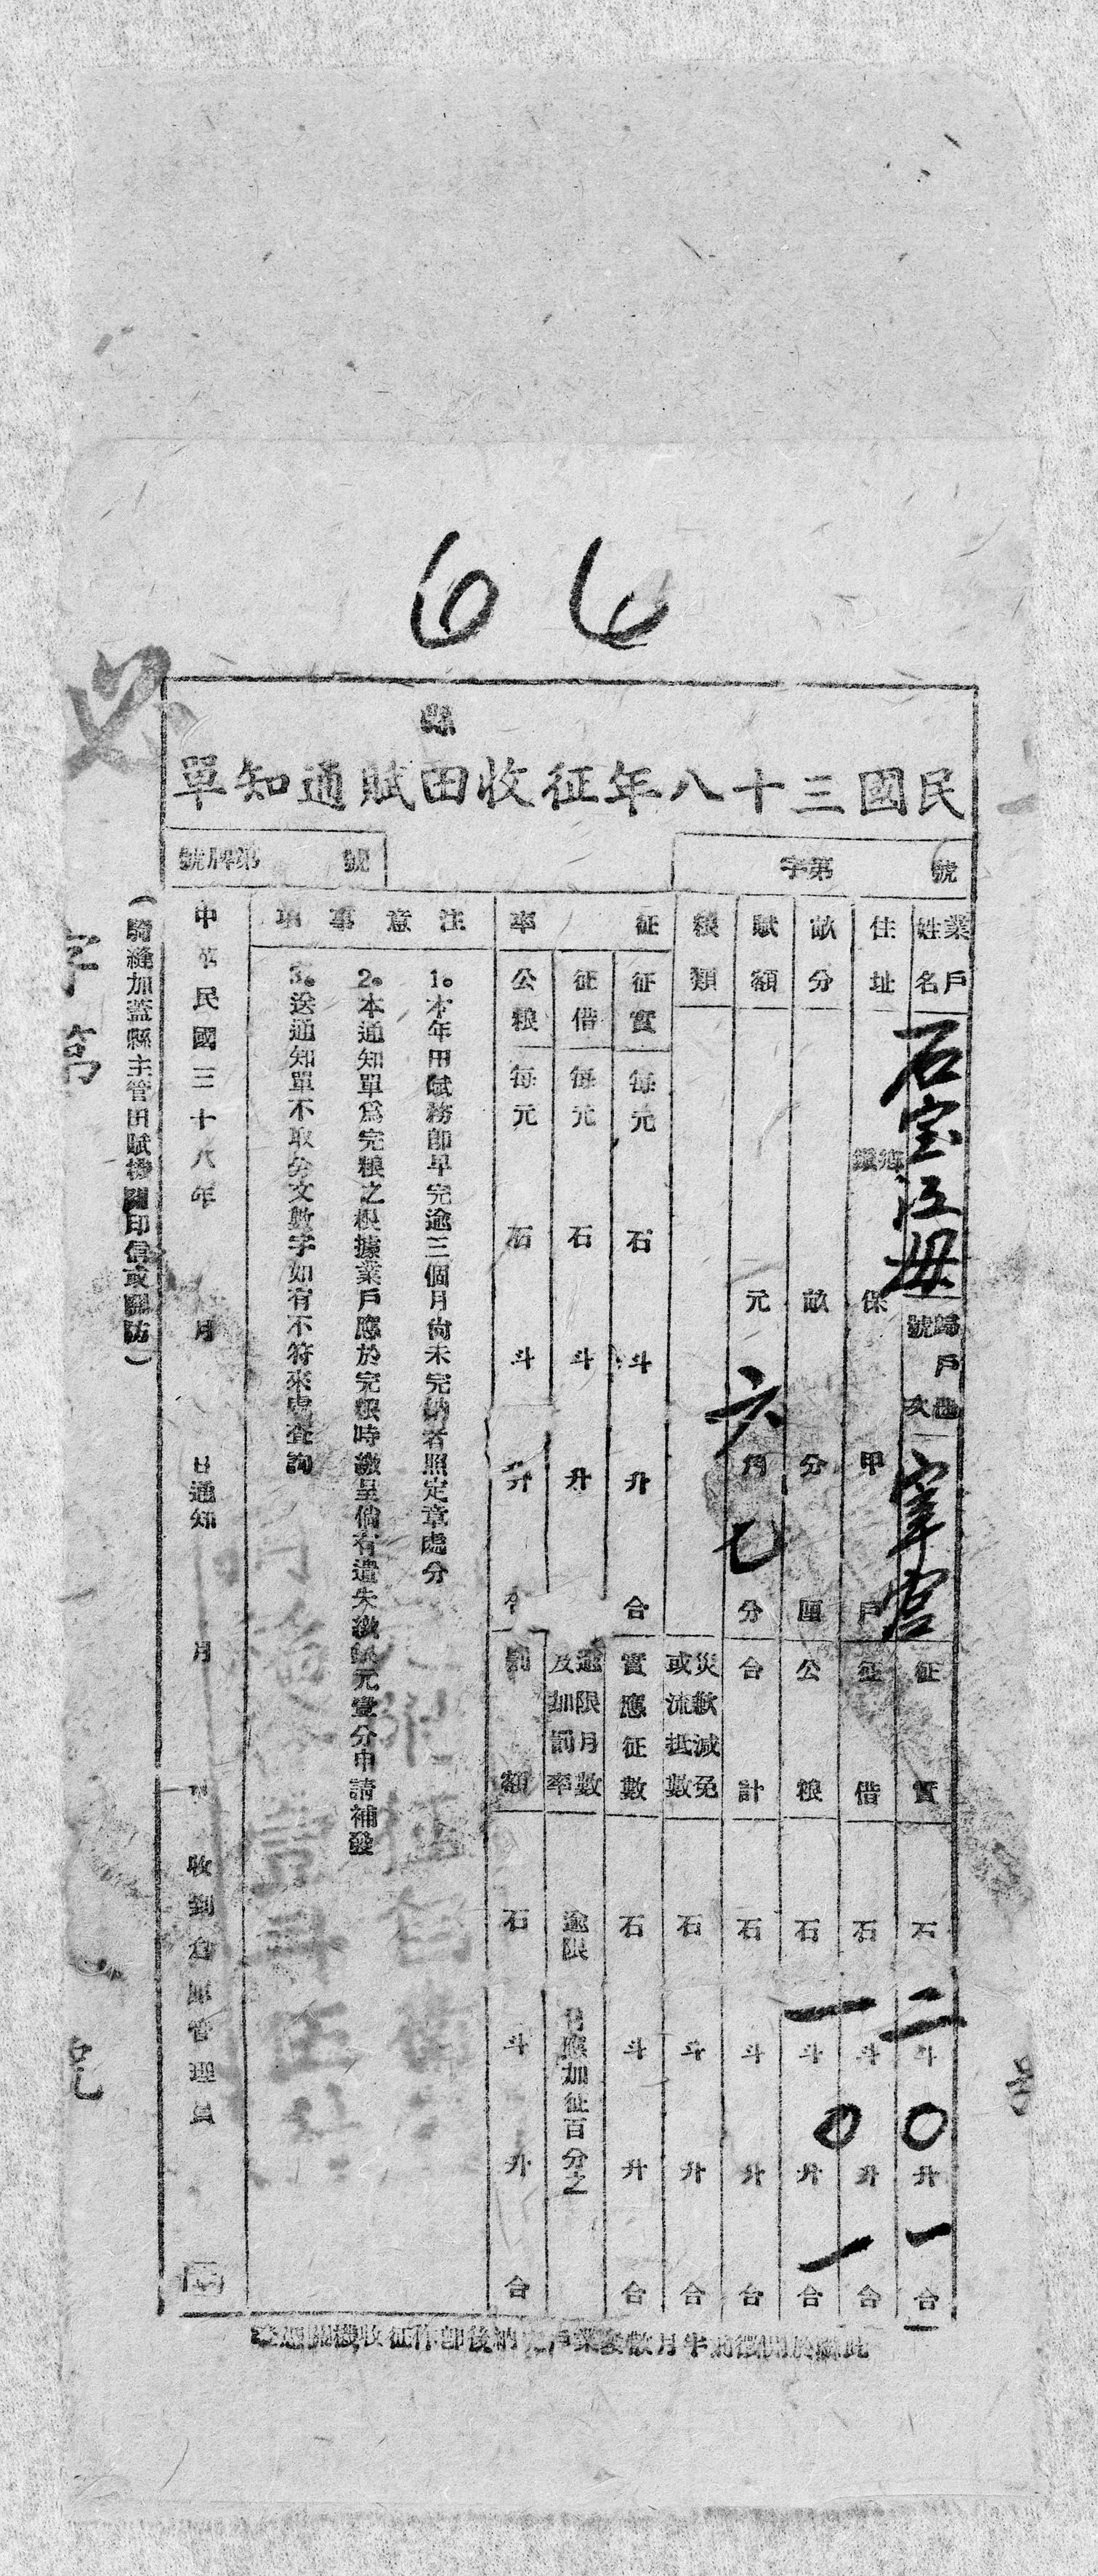 66
縣
民國三十八年征收田賦通知單
字第 號
號 號牌第
業戶姓名 石宝江毋 歸戶冊號次 宰宫
住址 鄉鎮 保 甲 戶
畝分 畝 分 厘
賦額 元 六角 七分
粮類
征率
征實 每元 石 斗 升 合
征借 每元 石 斗 升
公粮 每元 石 斗 升 合
征實 石 二斗 〇升 一合
征借 石 斗 升 合
公粮 石 一斗 〇升 一合
合計 石 斗 升 合
災歉減免或流抵數 石 斗 升 合
實應征數 石 斗 升 合
逾限月數及加罰率 逾限 月應加征百分之
罰額 石 斗 升 合
注意事項
1。本年田賦務即早完逾三個月尚未完納者照定章處分
2。本通知單為完粮之根據業戶應於完粮時繳呈倘有遺失繳銀元壹分申請補發
3。送通知單不取分文數字如有不符來處查詢
中華民國三十八年 月 日通知 月 日 收到倉庫管理員
(騎縫加蓋縣主管田賦機關印信或關防)
字第
号